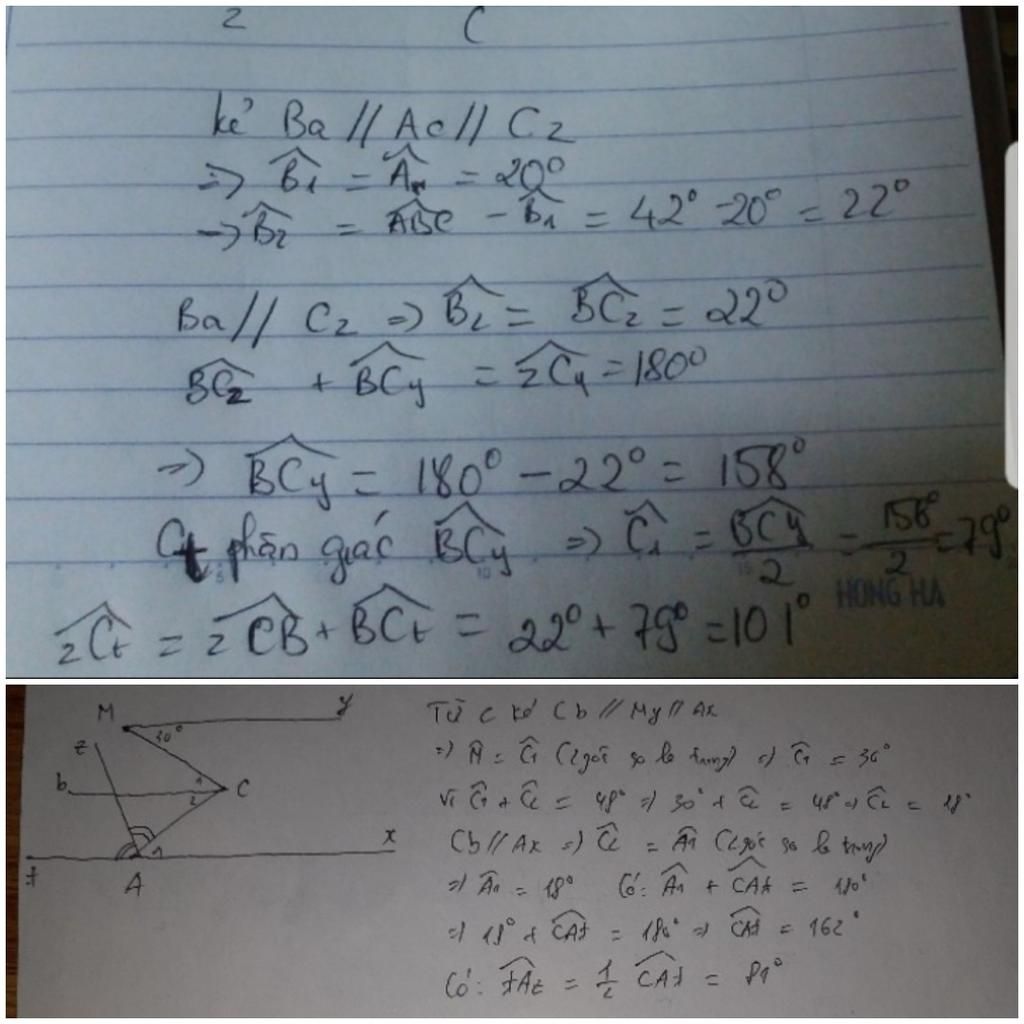 z C
kẻ Ba // Ac // Cz
=> B̂1 = Â = 20°
-> B̂2 = ABC - B̂1 = 42° - 20° = 22°
Ba // Cz => B̂2 = BCz = 22°
BCz + BCy = zCy = 180°
=> BCy = 180° - 22° = 158°
Ct phân giác BCy => Ĉ1 = BCy/2 = 158°/2 = 79°
HONG HA
zCt = zCB + BCt = 22° + 79° = 101°
M y
z 30°
b 1 2 C
x
t A 1
Từ C kẻ Cb // My // Ax
=> M̂ = Ĉ1 (2 góc so le trong) => Ĉ1 = 30°
Vì Ĉ1 + Ĉ2 = 48° => 30° + Ĉ2 = 48° => Ĉ2 = 18°
Cb // Ax => Ĉ2 = Â1 (2 góc so le trong)
=> Â1 = 18° Có: Â1 + CAt = 180°
=> 18° + CAt = 180° => CAt = 162°
Có: tAz = 1/2 CAt = 81°